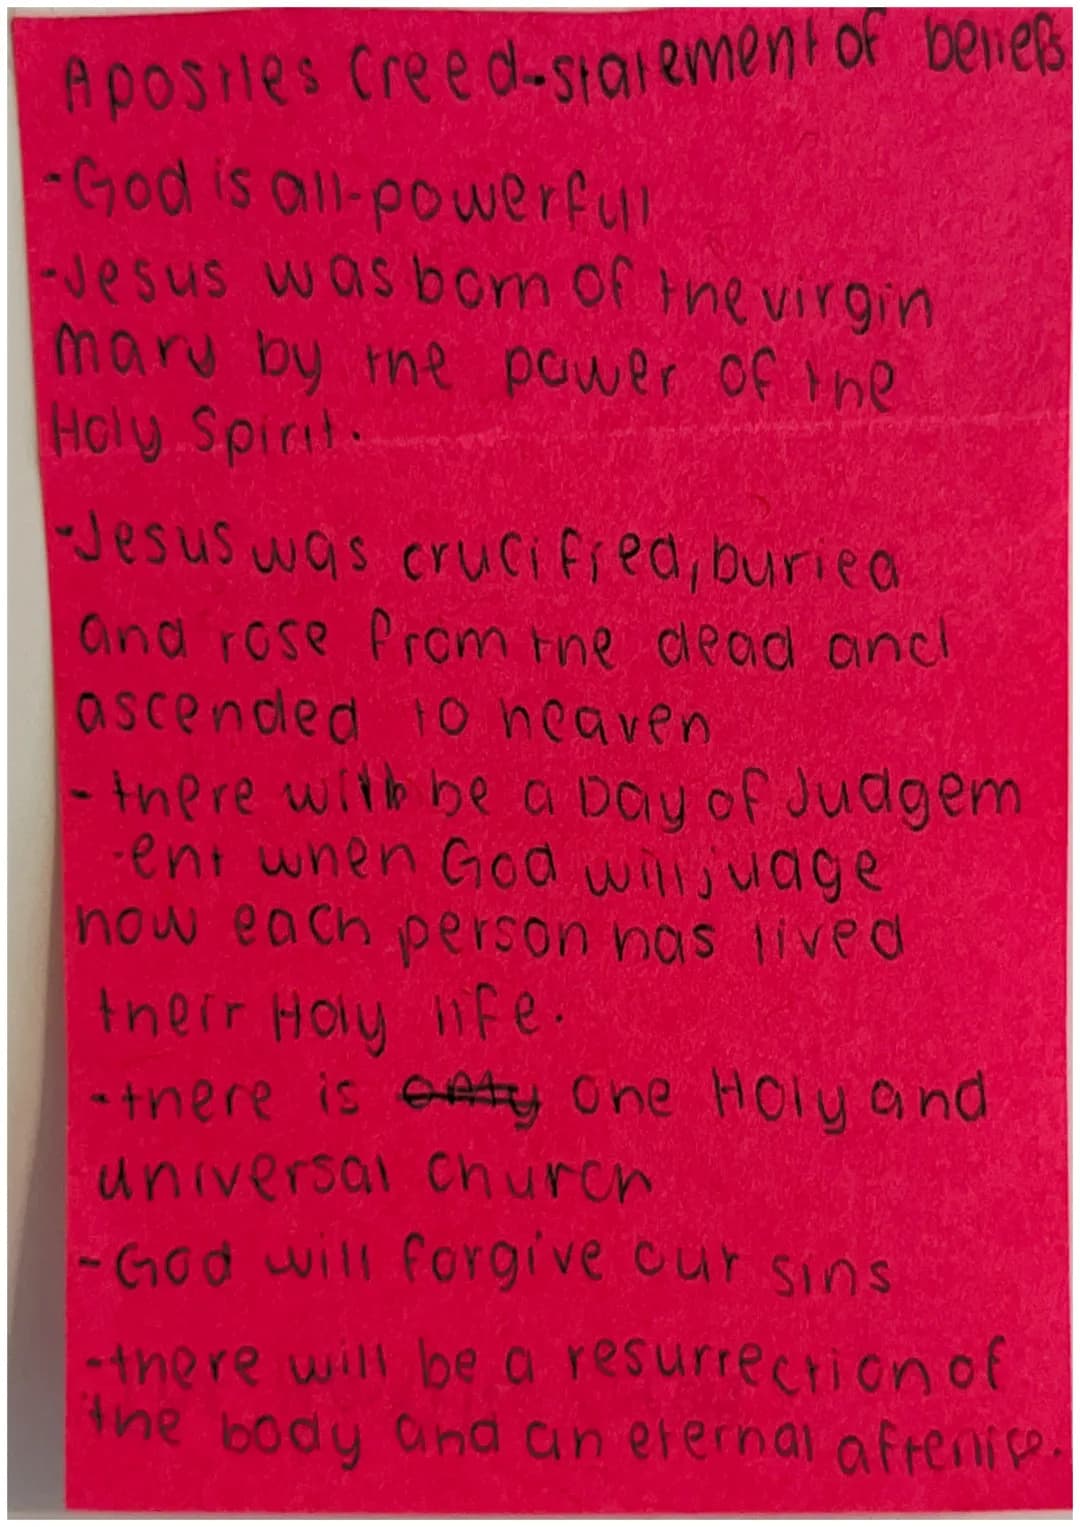 Apostles Creed-statement of beliefs
-God is all-powerfull
-Jesus was born of the virgin
Mary by the power of the
Holy Spirit.
-Jesus was crucified, buried
and rose from the dead and
ascended to heaven
- there will be a Day of Judgem
-ent when God will judge
how each person has lived
their Holy life.
-there is only one Holy and
universal church
-God will forgive our sins
-there will be a resurrection of
the body and an eternal afterlife.